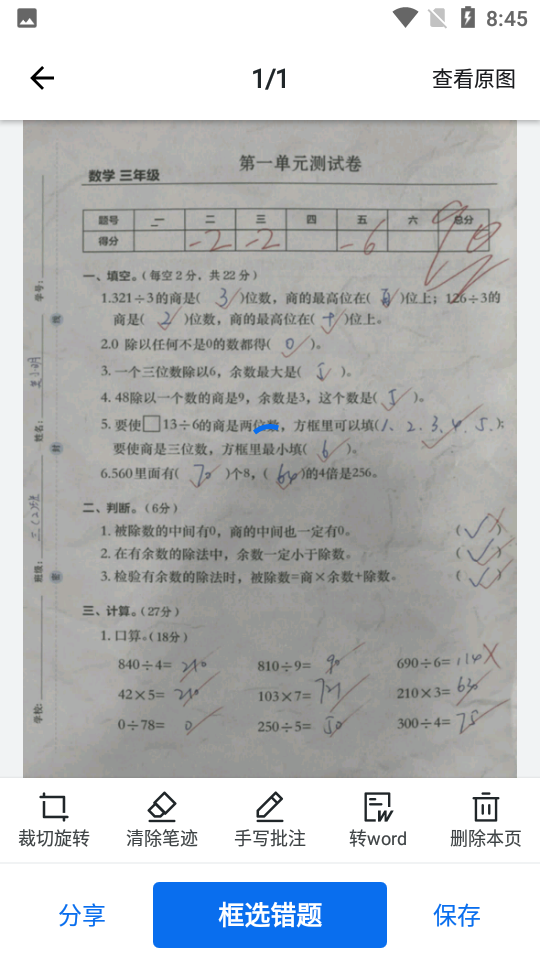 8:45
1/1
查看原图
第一单元测试卷
数学 三年级
题号 一 二 三 四 五 六 总分
得分 -2 -2 -6
一、填空。(每空2分，共22分)
1.321÷3的商是( 3 )位数，商的最高位在( 百 )位上；126÷3的
商是( 2 )位数，商的最高位在( 十 )位上。
2.0 除以任何不是0的数都得( 0 )。
3. 一个三位数除以6，余数最大是( 5 )。
4. 48除以一个数的商是9，余数是3，这个数是( 5 )。
5. 要使□13÷6的商是两位数，方框里可以填(1、2、3、4、5、);
要使商是三位数，方框里最小填( 6 )。
6.560里面有( 70 )个8，( 64 )的4倍是256。
二、判断。(6分)
1. 被除数的中间有0，商的中间也一定有0。 (✓)
2. 在有余数的除法中，余数一定小于除数。 (✓)
3. 检验有余数的除法时，被除数=商×余数+除数。 (✓)
三、计算。(27分)
1. 口算。(18分)
840÷4= 210 810÷9= 90 690÷6= 114
42×5= 210 103×7= 721 210×3= 630
0÷78= 0 250÷5= 50 300÷4= 75
学号：
姓名：
班级：
学校：
裁切旋转 清除笔迹 手写批注 转word 删除本页
分享 框选错题 保存